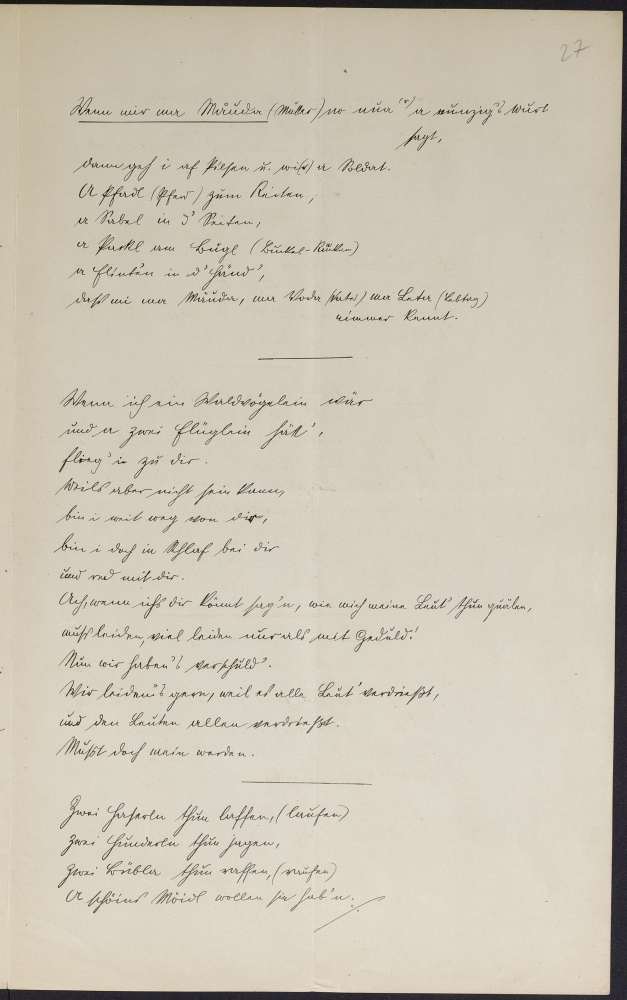 27
Wenn mir ma Mäuda (Mutter) no nua a wunzig's Wurt
sagt,
dann geh i af Pilsen u. wir(d) a Soldat.
A Pfadl (Pferd) zum Reiten,
a Sabel in d' Seiten,
a Packl am Bugl (Buckel-Rücken)
a Flinten in d' Händ',
daß mi ma Mäuda, ma Voda (Vater) ma Leta (Lebtag)
nimmer kennt.
Wenn ich ein Waldvögelein wär
und a zwei Flüglein hätt',
flieg' i zu dir.
Weils aber nicht sein kann,
bin i weit weg von dir,
bin i doch in Schlaf bei dir
und red mit dir.
Ach, wenn ichs dir könnt sag'n, wie mich meine Leut' thun quälen,
muß leiden, viel leiden nur als mit Geduld!
Nun wir haben's verschuld'.
Wir leiden's gern, weil es alle Leut' verdrießt,
und den Leuten allen verdrießt.
Mußt doch mein werden.
Zwei Haserln thun laffen, (laufen)
Zwei Hunderln thun jagen,
Zwei Bübla thun raffen, (raufen)
A schöins Möidl wollen sie hab'n.